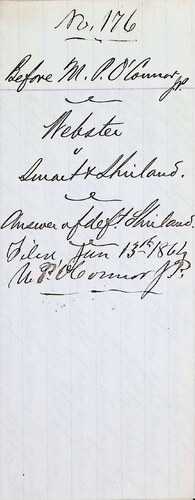 No. 176
Before M. P. O'Connor J.P.
Webster
v
Smart & Shirland.
Answer of deft. Shirland.
Filed Jan 13th 1864
M P. O'Connor J.P.